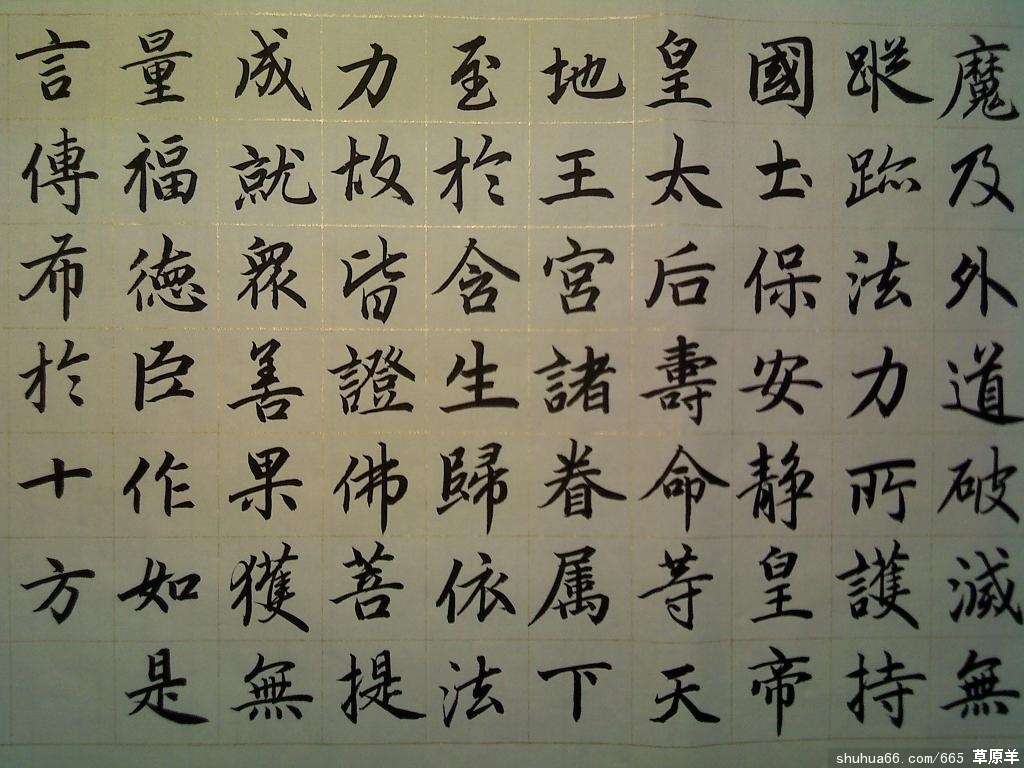 魔及外道破滅無
蹤跡法力所護持
國土保安静皇帝
皇太后壽命等天
地王宮諸眷属下
至於含生歸依法
力故皆證佛菩提
成就衆善果獲無
量福德臣作如是
言傳布於十方
shuhua66.com/665 草原羊